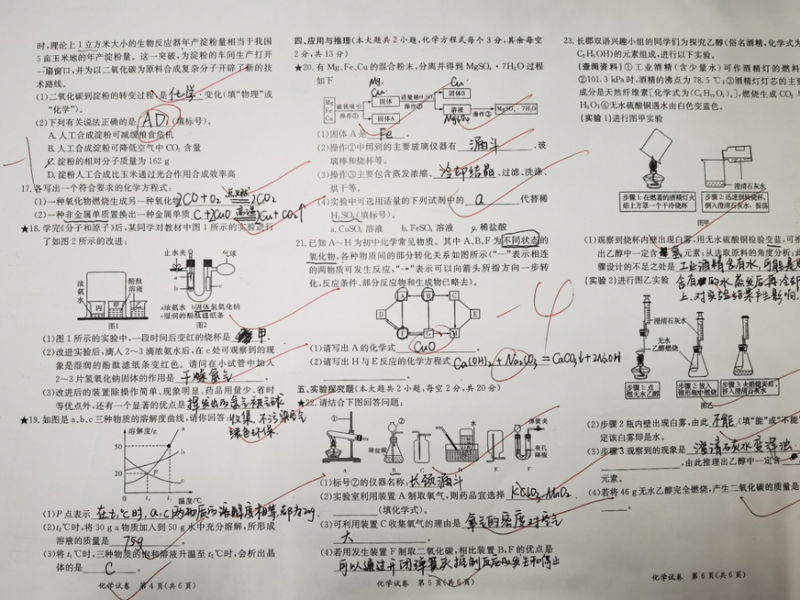 时,理论上1立方米大小的生物反应器年产淀粉量相当于我国
5亩玉米地的年产淀粉量。这一突破,为淀粉的车间生产打开
一扇窗口,并为以二氧化碳为原料合成复杂分子开辟了新的技
术路线。
(1)二氧化碳到淀粉的转变过程是化学变化(填“物理”或
“化学”)。
(2)下列有关说法正确的是AD(填标号)。
A.人工合成淀粉可减缓粮食危机
B.人工合成淀粉可降低空气中CO₂含量
C.淀粉的相对分子质量为162 g
D.人工合成淀粉比玉米通过光合作用合成效率高
-1
17.各写出一个符合要求的化学方程式:
(1)一种氧化物燃烧生成另一种氧化物 2CO+O₂ 点燃 2CO₂
(2)一种非金属单质置换出一种金属单质 C+ 高温 Cu+CO₂↑
★18.学完《分子和原子》后,某同学对教材中图1所示的实验进行
了如图2所示的改进:
浓氨水
酚酞溶液
丙 甲 乙
图1
止水夹
气球
a浓氨水 b固体氢氧化钠
c湿润的酚酞滤纸条
图2
(1)图1所示的实验中,一段时间后变红的烧杯是甲。
(2)改进实验后,滴入2~3滴浓氨水后,在c处可观察到的现
象是湿润的酚酞滤纸条变红色。请问在小试管中加入
2~3片氢氧化钠固体的作用是干燥氨气
(3)改进后的装置除操作简单、现象明显、药品用量少、省时
等优点外,还有一个显著的优点是
收集,不污染空气
绿色环保
★19.如图是a、b、c三种物质的溶解度曲线,请你回答:
溶解度/g
50
20
a
b
c
P
0 t₁ t₂ 温度/℃
(1)P点表示在t₁℃时,a、c两物质的溶解度相等,都为20g。
(2)t₂℃时,将30 g a物质加入到50 g水中充分溶解,所形成
溶液的质量是75g
(3)将t₁℃时,三种物质的饱和溶液升温至t₂℃时,会析出晶
体的是C。
化学试卷 第4页(共6页)
四、应用与推理(本大题共2小题,化学方程式每个3分,其余每空
2分,共13分)
★20.有Mg、Fe、Cu的混合粉末,分离并得到MgSO₄·7H₂O过程
如下
Mg
Fe
Cu
磁铁吸引
操作①
Mg,
Cu
固体
固体A
稀H₂SO₄
操作②
Cu
固体B
溶液
MgSO₄
操作③
MgSO₄·7H₂O
(1)固体A是Fe。
(2)操作②中用到的主要玻璃仪器有漏斗、玻
璃棒和烧杯等。
(3)操作③主要包含蒸发浓缩、冷却结晶、过滤、洗涤、
烘干等。
(4)实验中可选用适量的下列试剂中的a代替稀
H₂SO₄(填标号)。
a.CuSO₄溶液 b.FeSO₄溶液 c.稀盐酸
21.已知A—H为初中化学常见物质。其中A、B、F为不同状态的
氧化物,各种物质间的部分转化关系如图所示(“—”表示相连
的两物质可发生反应,“→”表示可以向箭头所指方向一步转
化,反应条件、部分反应物和生成物已略去)。
-4
(1)请写出A的化学式CuO
(2)请写出H与E反应的化学方程式Ca(OH)₂+Na₂CO₃=CaCO₃↓+2NaOH
五、实验探究题(本大题共2小题,每空2分,共20分)
★22.请结合下图回答问题:
①
②
稀盐酸
水
弹簧夹
有孔
隔板
A B C D E F
(1)标号②的仪器名称:长颈漏斗
(2)实验室利用装置A制取氧气,则药品宜选择KClO₃ MnO₂
(填化学式)。
(3)可利用装置C收集氧气的理由是氧气的密度对空气
大
(4)若用发生装置F制取二氧化碳,相比装置B,F的优点是
可以通过开闭弹簧夹控制反应的发生和停止
化学试卷 第5页(共6页)
23.长郡双语兴趣小组的同学们为探究乙醇(俗名酒精,化学式为
C₂H₅OH)的元素组成,进行以下实验。
【查阅资料】①工业酒精(含少量水)可作酒精灯的燃
②101.3 kPa时,酒精的沸点为78.5℃;③酒精灯灯芯的主要
成分是天然纤维素[化学式为(C₆H₁₀O₅)ₙ],燃烧生成CO₂与
H₂O;④无水硫酸铜遇水由白色变蓝色。
【实验1】进行图甲实验
澄清石灰水
步骤1:在燃着的酒精灯火
焰上方罩一个干冷烧杯
步骤2:迅速倒转烧杯,
倒入澄清石灰水,振荡
图甲
(1)观察到烧杯内壁出现白雾,用无水硫酸铜检验变蓝,可推
出乙醇中一定含氢元素;从选取原料的角度分析:此
骤设计的不足之处是工业酒精含有水,可能是
含有的水蒸发后再冷却
上,对实验结果产生影响。
【实验2】进行图乙实验
澄清石灰水
澄清石灰水
无水
乙醇燃烧
步骤1:点
燃无水乙醇
步骤2:放入
锥形瓶中燃烧
图乙
(2)步骤2瓶内壁出现白雾,由此不能(填“能”或“不能”
定该白雾即是水。
(3)步骤3观察到的现象是澄清石灰水变浑浊
,由此推理出乙醇中一定含
元素。
(4)若将46 g无水乙醇完全燃烧,产生二氧化碳的质量是
化学试卷 第6页(共6页)